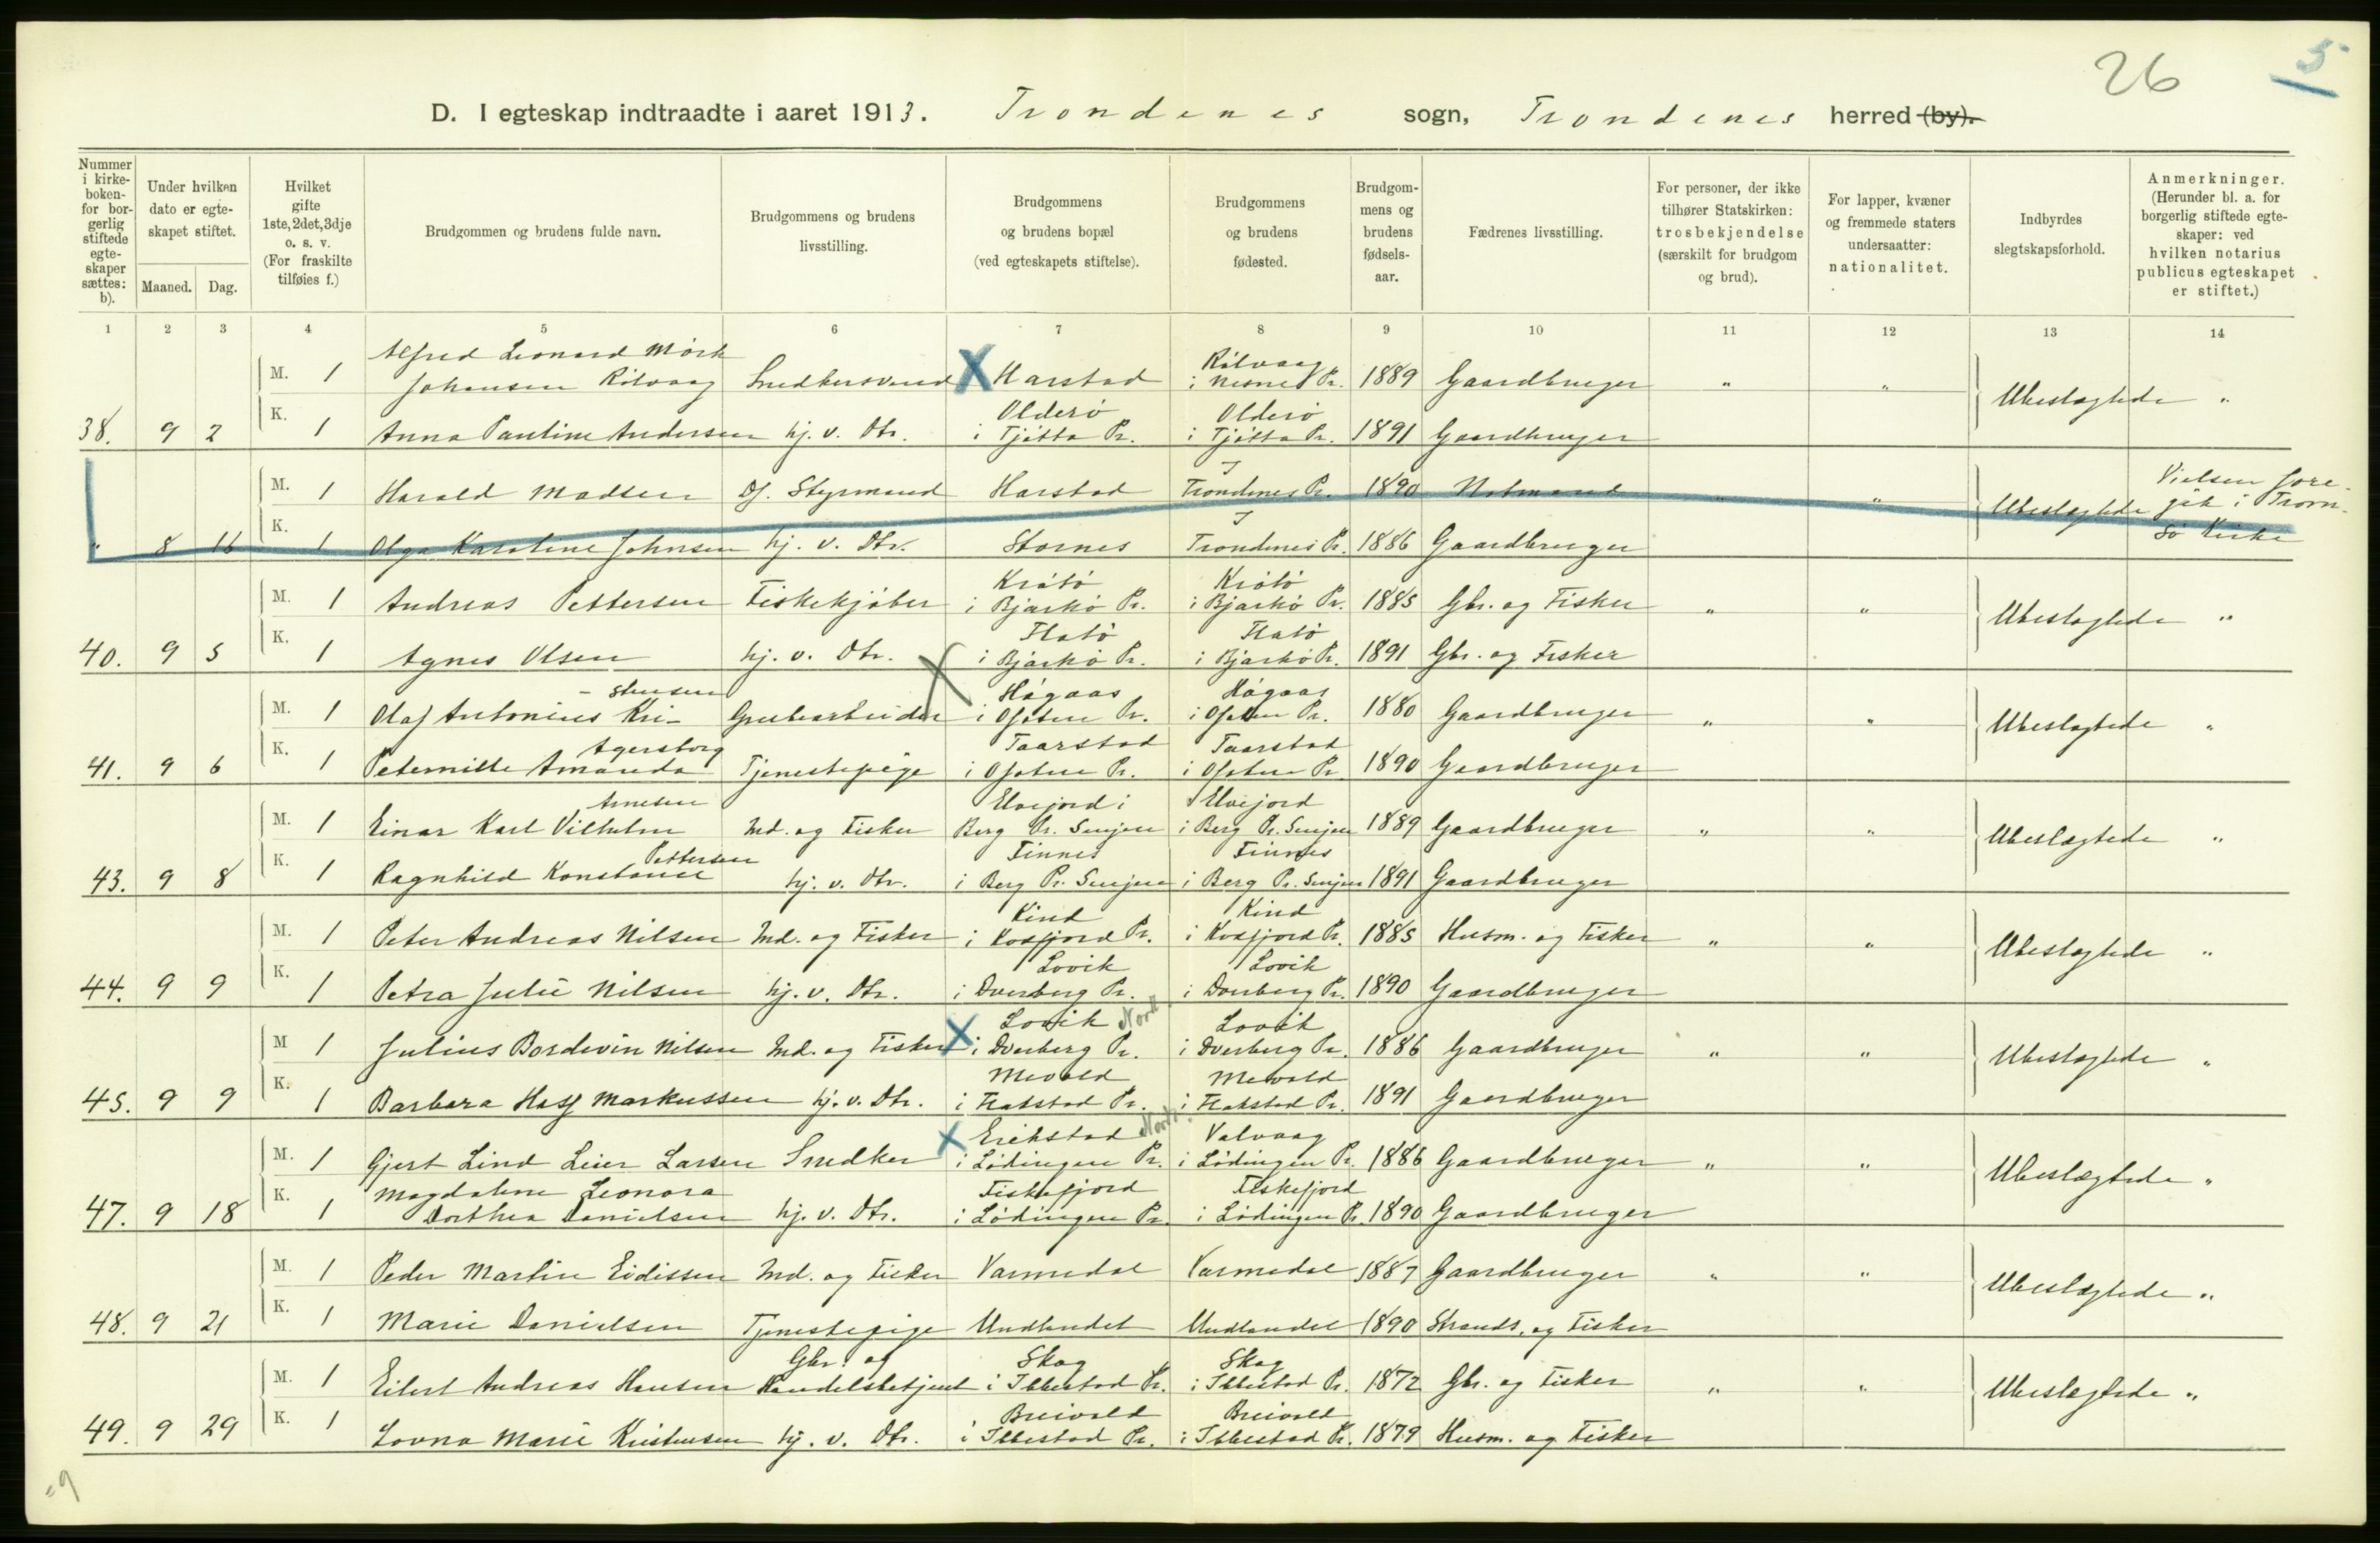 26
5
D. I egteskap indtraadte i aaret 1913. Trondenes sogn, Trondenes herred (by).
Nummer i kirkeboken- for borgerlig stiftede egteskaper sættes: b).
Under hvilken dato er egteskapet stiftet.
Maaned. Dag.
Hvilket gifte 1ste, 2det, 3dje o. s. v. (For fraskilte tilføies f.)
Brudgommen og brudens fulde navn.
Brudgommens og brudens livsstilling.
Brudgommens og brudens bopæl (ved egteskapets stiftelse).
Brudgommens og brudens fødested.
Brudgommens og brudens fødselsaar.
Fædrenes livsstilling.
For personer, der ikke tilhører Statskirken: trosbekjendelse (særskilt for brudgom og brud).
For lapper, kvæner og fremmede staters undersaatter: nationalitet.
Indbyrdes slegtskapsforhold.
Anmerkninger. (Herunder bl. a. for borgerlig stiftede egteskaper: ved hvilken notarius publicus egteskapet er stiftet.)
1 2 3 4 5 6 7 8 9 10 11 12 13 14
Alfred Leonard Mörk Rölvaag
M. 1 Johansen Rölvaag X Harstad i Nesne Pr. 1889 Gaardbruger " " Ubeslægtede "
Olderö Olderö
38. 9 2 K. 1 Anna Pauline Andersen hj. v. Dtr. i Tjötta Pr. i Tjötta Pr. 1891 Gaardbruger
M. 1 Harald Madsen Df. Styrmand Harstad Trondenes Pr. 1890 Notmand " " Ubeslægtede Vielsen fore-
gik i Trom-
" 8 16 K. 1 Olga Karoline Johnsen hj. v. Dtr. Stornes Trondenes Pr. 1886 Gaardbruger sö Kirke
Krötö Krötö
M. 1 Andreas Pettersen Fiskekjöber i Bjarkö Pr. i Bjarkö Pr. 1885 Gbr. og Fisker " " Ubeslægtede "
Flatö Flatö
40. 9 5 K. 1 Agnes Olsen hj. v. Dtr. i Bjarkö Pr. i Bjarkö Pr. 1891 Gbr. og Fisker
- stensen X Högaas Högaas
M. 1 Olaf Antonius Kri- Grubearbeider i Ofoten Pr. i Ofoten Pr. 1880 Gaardbruger " " Ubeslægtede "
Agersborg Taarstad Taarstad
41. 9 6 K. 1 Peternille Amanda Tjenestepige i Ofoten Pr. i Ofoten Pr. 1890 Gaardbruger
Arnesen Elvejord i Elvejord
M. 1 Einar Karl Vilhelm Ind. og Fisker Berg Pr. Senjen i Berg Pr. Senjen 1889 Gaardbruger " " Ubeslægtede "
Pettersen Finnes Finnes
43. 9 8 K. 1 Ragnhild Konstanse hj. v. Dtr. i Berg Pr. Senjen i Berg Pr. Senjen 1891 Gaardbruger
Kind Kind
M. 1 Peter Andreas Nilsen Ind. og Fisker i Kvæfjord Pr. i Kvæfjord Pr. 1885 Husm. og Fisker " " Ubeslægtede "
Lovik Lovik
44. 9 9 K. 1 Petra Julie Nilsen hj. v. Dtr. i Dverberg Pr. i Dverberg Pr. 1890 Gaardbruger
Lovik Nordl. Lovik
M 1 Julius Bordevin Nilsen Ind. og Fisker X i Dverberg Pr. i Dverberg Pr. 1886 Gaardbruger " " Ubeslægtede "
Mevold Mevold
45. 9 9 K. 1 Barbara Hass Markussen hj. v. Dtr. i Flakstad Pr. i Flakstad Pr. 1891 Gaardbruger
Erikstad Nordl. Valvaag
M. 1 Gjert Lind Leier Larsen Snedker X i Lödingen Pr. i Lödingen Pr. 1886 Gaardbruger " " Ubeslægtede "
Magdalene Leonora Fiskefjord Fiskefjord
47. 9 18 K. 1 Dorthea Danielsen hj. v. Dtr. i Lödingen Pr. i Lödingen Pr. 1890 Gaardbruger
M. 1 Peder Martin Eidissen Ind. og Fisker Varmedal Varmedal 1887 Gaardbruger " " Ubeslægtede "
48. 9 21 K. 1 Marie Danielsen Tjenestepige Undlandet Undlandet 1890 Strands. og Fisker
Gbr. og Skog Skog
M. 1 Eilert Andreas Hansen Handelsbetjent i Ibbestad Pr. i Ibbestad Pr. 1872 Gbr. og Fisker " " Ubeslægtede "
Breivold Breivold
49. 9 29 K. 1 Lovna Marie Kristensen hj. v. Dtr. i Ibbestad Pr. i Ibbestad Pr. 1879 Husm. og Fisker